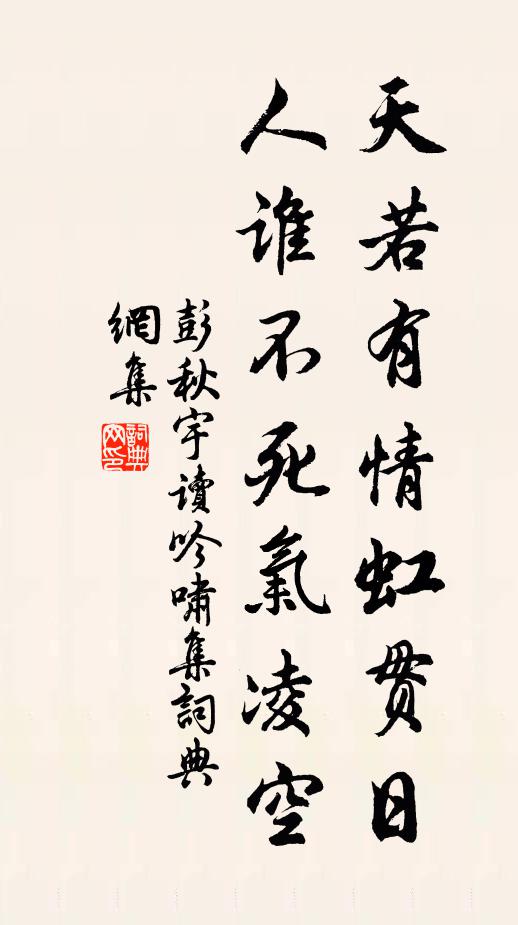 天若有情虹貫日
人誰不死氣凌空
彭秋宇讀吟嘯集詞典
網集
詞典網印